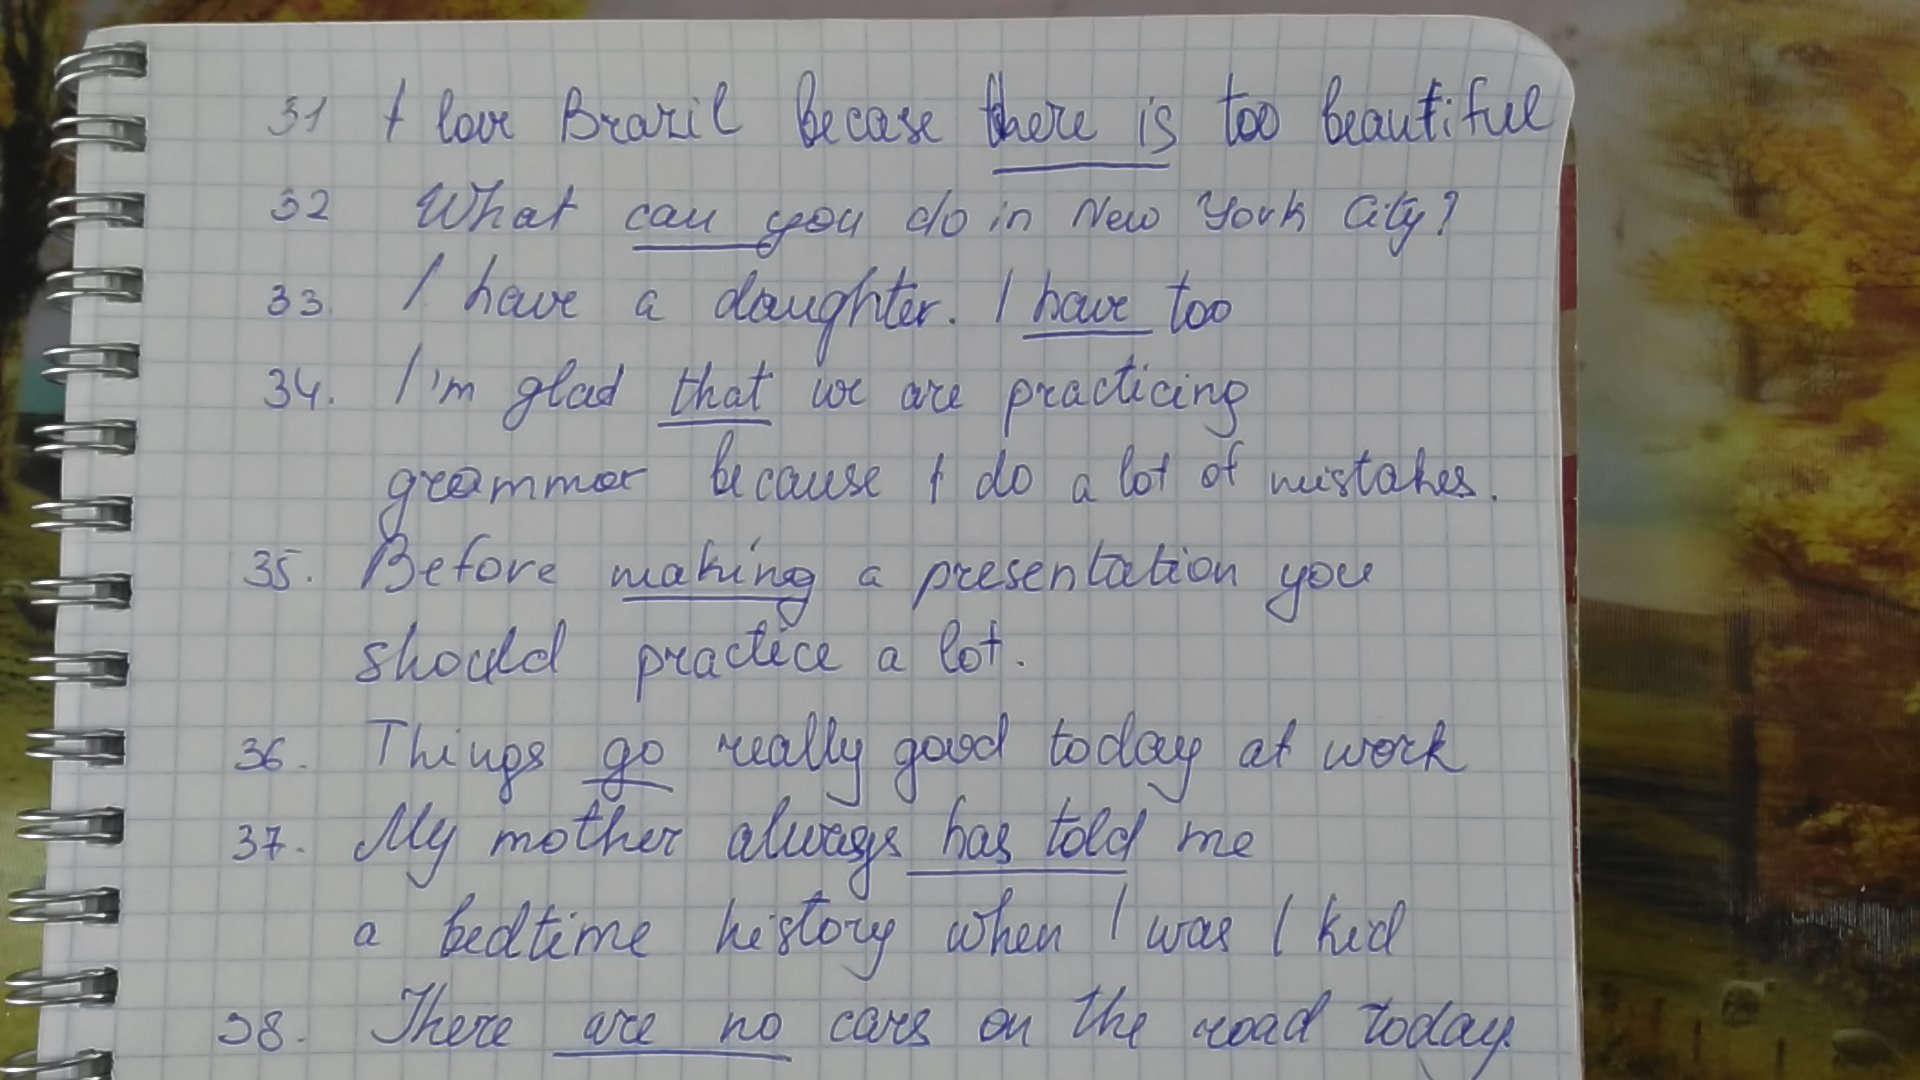 31 I love Brazil becase there is too beautiful
32 What can you do in New York City?
33. I have a daughter. I have too
34. I'm glad that we are practicing
grammar because I do a lot of mistakes.
35. Before making a presentation you
should practice a lot.
36. Things go really good today at work
37. My mother always has told me
a bedtime history when I was I kid
38. There are no cars on the road today.